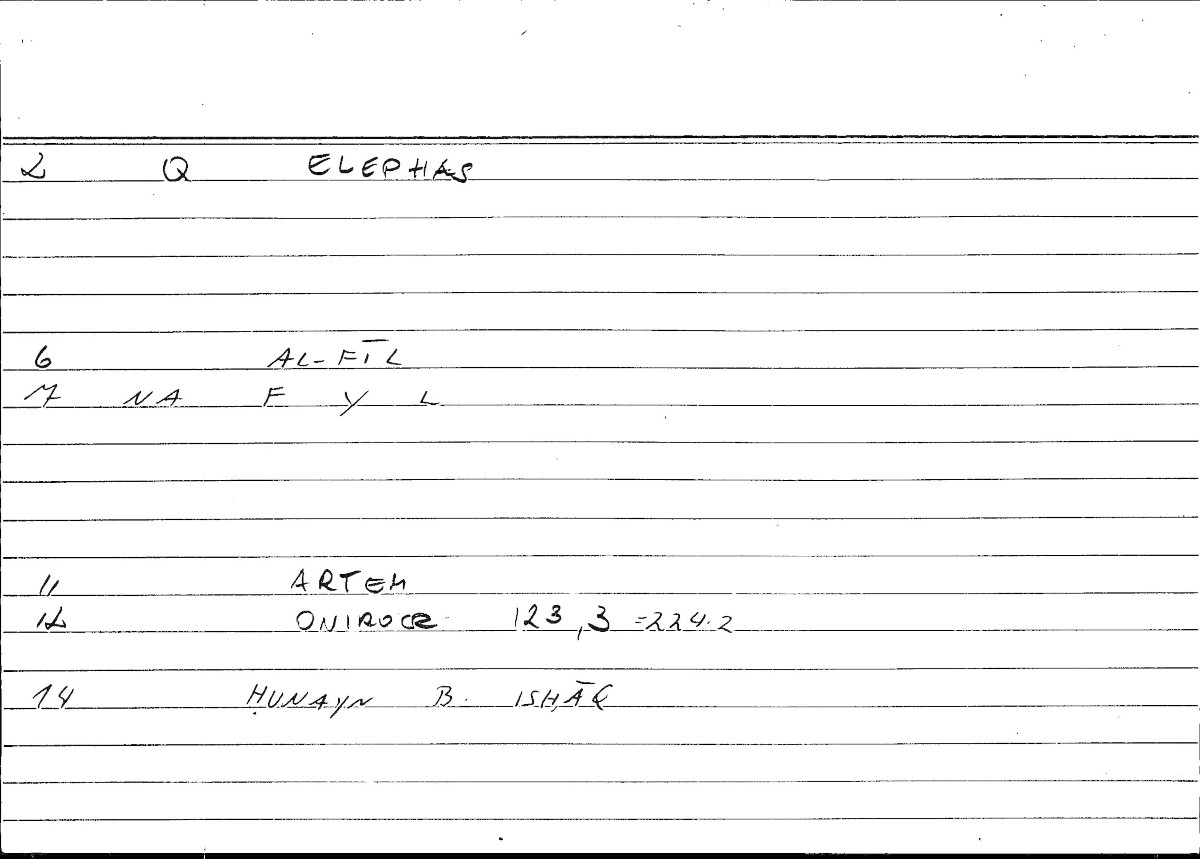 2 Q ELEPHAS
6 AL-FĪL
7 NA F Y L
11 ARTEM
12 ONIROCR. 123,3 =224.2
14 ḤUNAYN B. ISḤĀQ